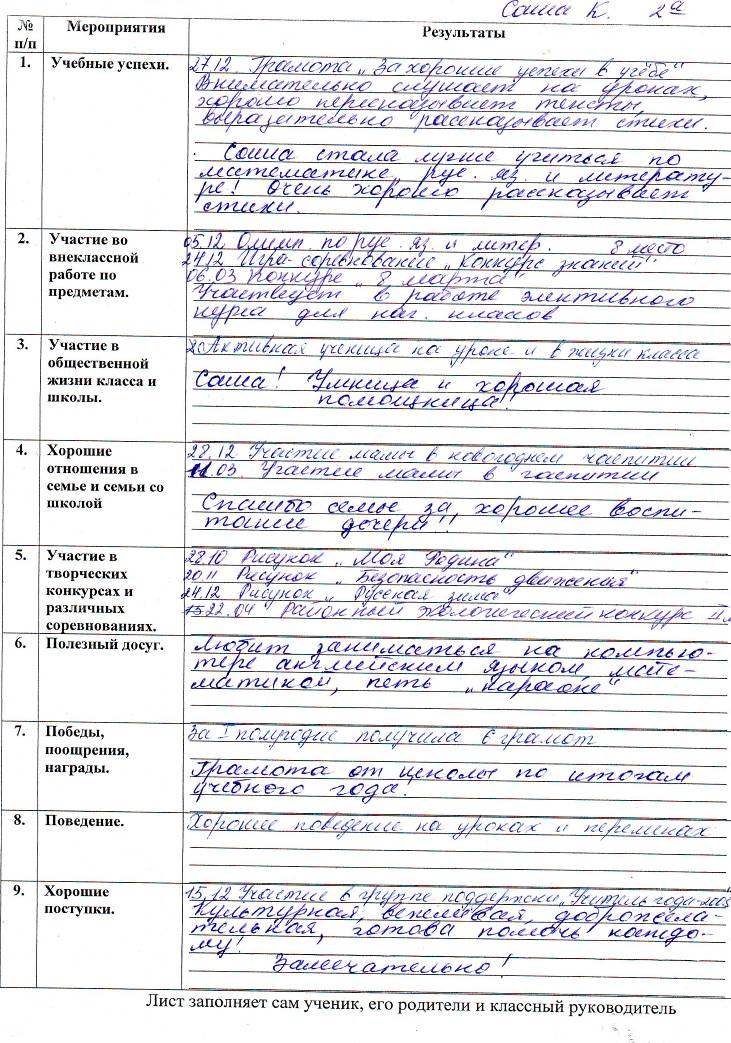 Саша К. 2а
№ п/п Мероприятия Результаты
1. Учебные успехи.
27.12 Грамота „За хорошие успехи в учёбе"
Внимательно слушает на уроках,
хорошо пересказывает тексты,
выразительно рассказывает стихи.
Саша стала лучше учиться по
математике, рус. яз. и литерату-
ре! Очень хорошо рассказывает
стихи.
2. Участие во
внеклассной
работе по
предметам.
05.12 Олимп. по рус. яз. и литер. 8 место
24.12 Игра-соревнование „Конкурс знаний"
06.03 Конкурс „8 марта"
Участвует в работе элективного
курса для нач. классов
3. Участие в
общественной
жизни класса и
школы.
Активная ученица на уроке и в жизни класса
Саша! Умница и хорошая
помощница!
4. Хорошие
отношения в
семье и семьи со
школой
28.12 Участие мамы в новогоднем чаепитии
11.03. Участие мамы в чаепитии
Спасибо семье за хорошее воспи-
тание дочери!!
5. Участие в
творческих
конкурсах и
различных
соревнованиях.
28.10 Рисунок „Моя Родина"
20.11 Рисунок „Безопасность движения"
24.12 Рисунок „Русская зима"
22.04 Районный экологический конкурс II м
6. Полезный досуг.
Любит заниматься на компью-
тере английским языком, мате-
матикой, петь „караоке"
7. Победы,
поощрения,
награды.
За I полугодие получила 6 грамот
Грамота от школы по итогам
учебного года!
8. Поведение.
Хорошее поведение на уроках и переменах
9. Хорошие
поступки.
15.12 Участие в группе поддержки „Учитель года-2008
Культурная, вежливая, доброжела-
тельная, готова помочь каждо-
му!
Замечательно!
Лист заполняет сам ученик, его родители и классный руководитель